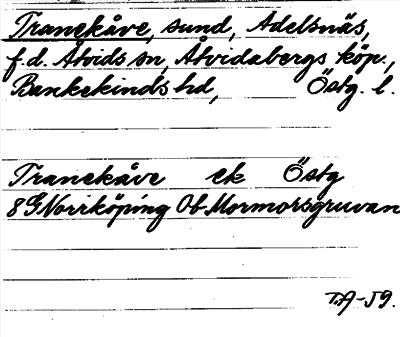 Tranekåve, sund, Adelsnäs,
f.d. Åtvids sn, Åtvidabergs köp.,
Bankekinds hd, Östg. l.
Tranekåve ek Östg
8G Norrköping Ob Mormorsgruvan
T.A-59.